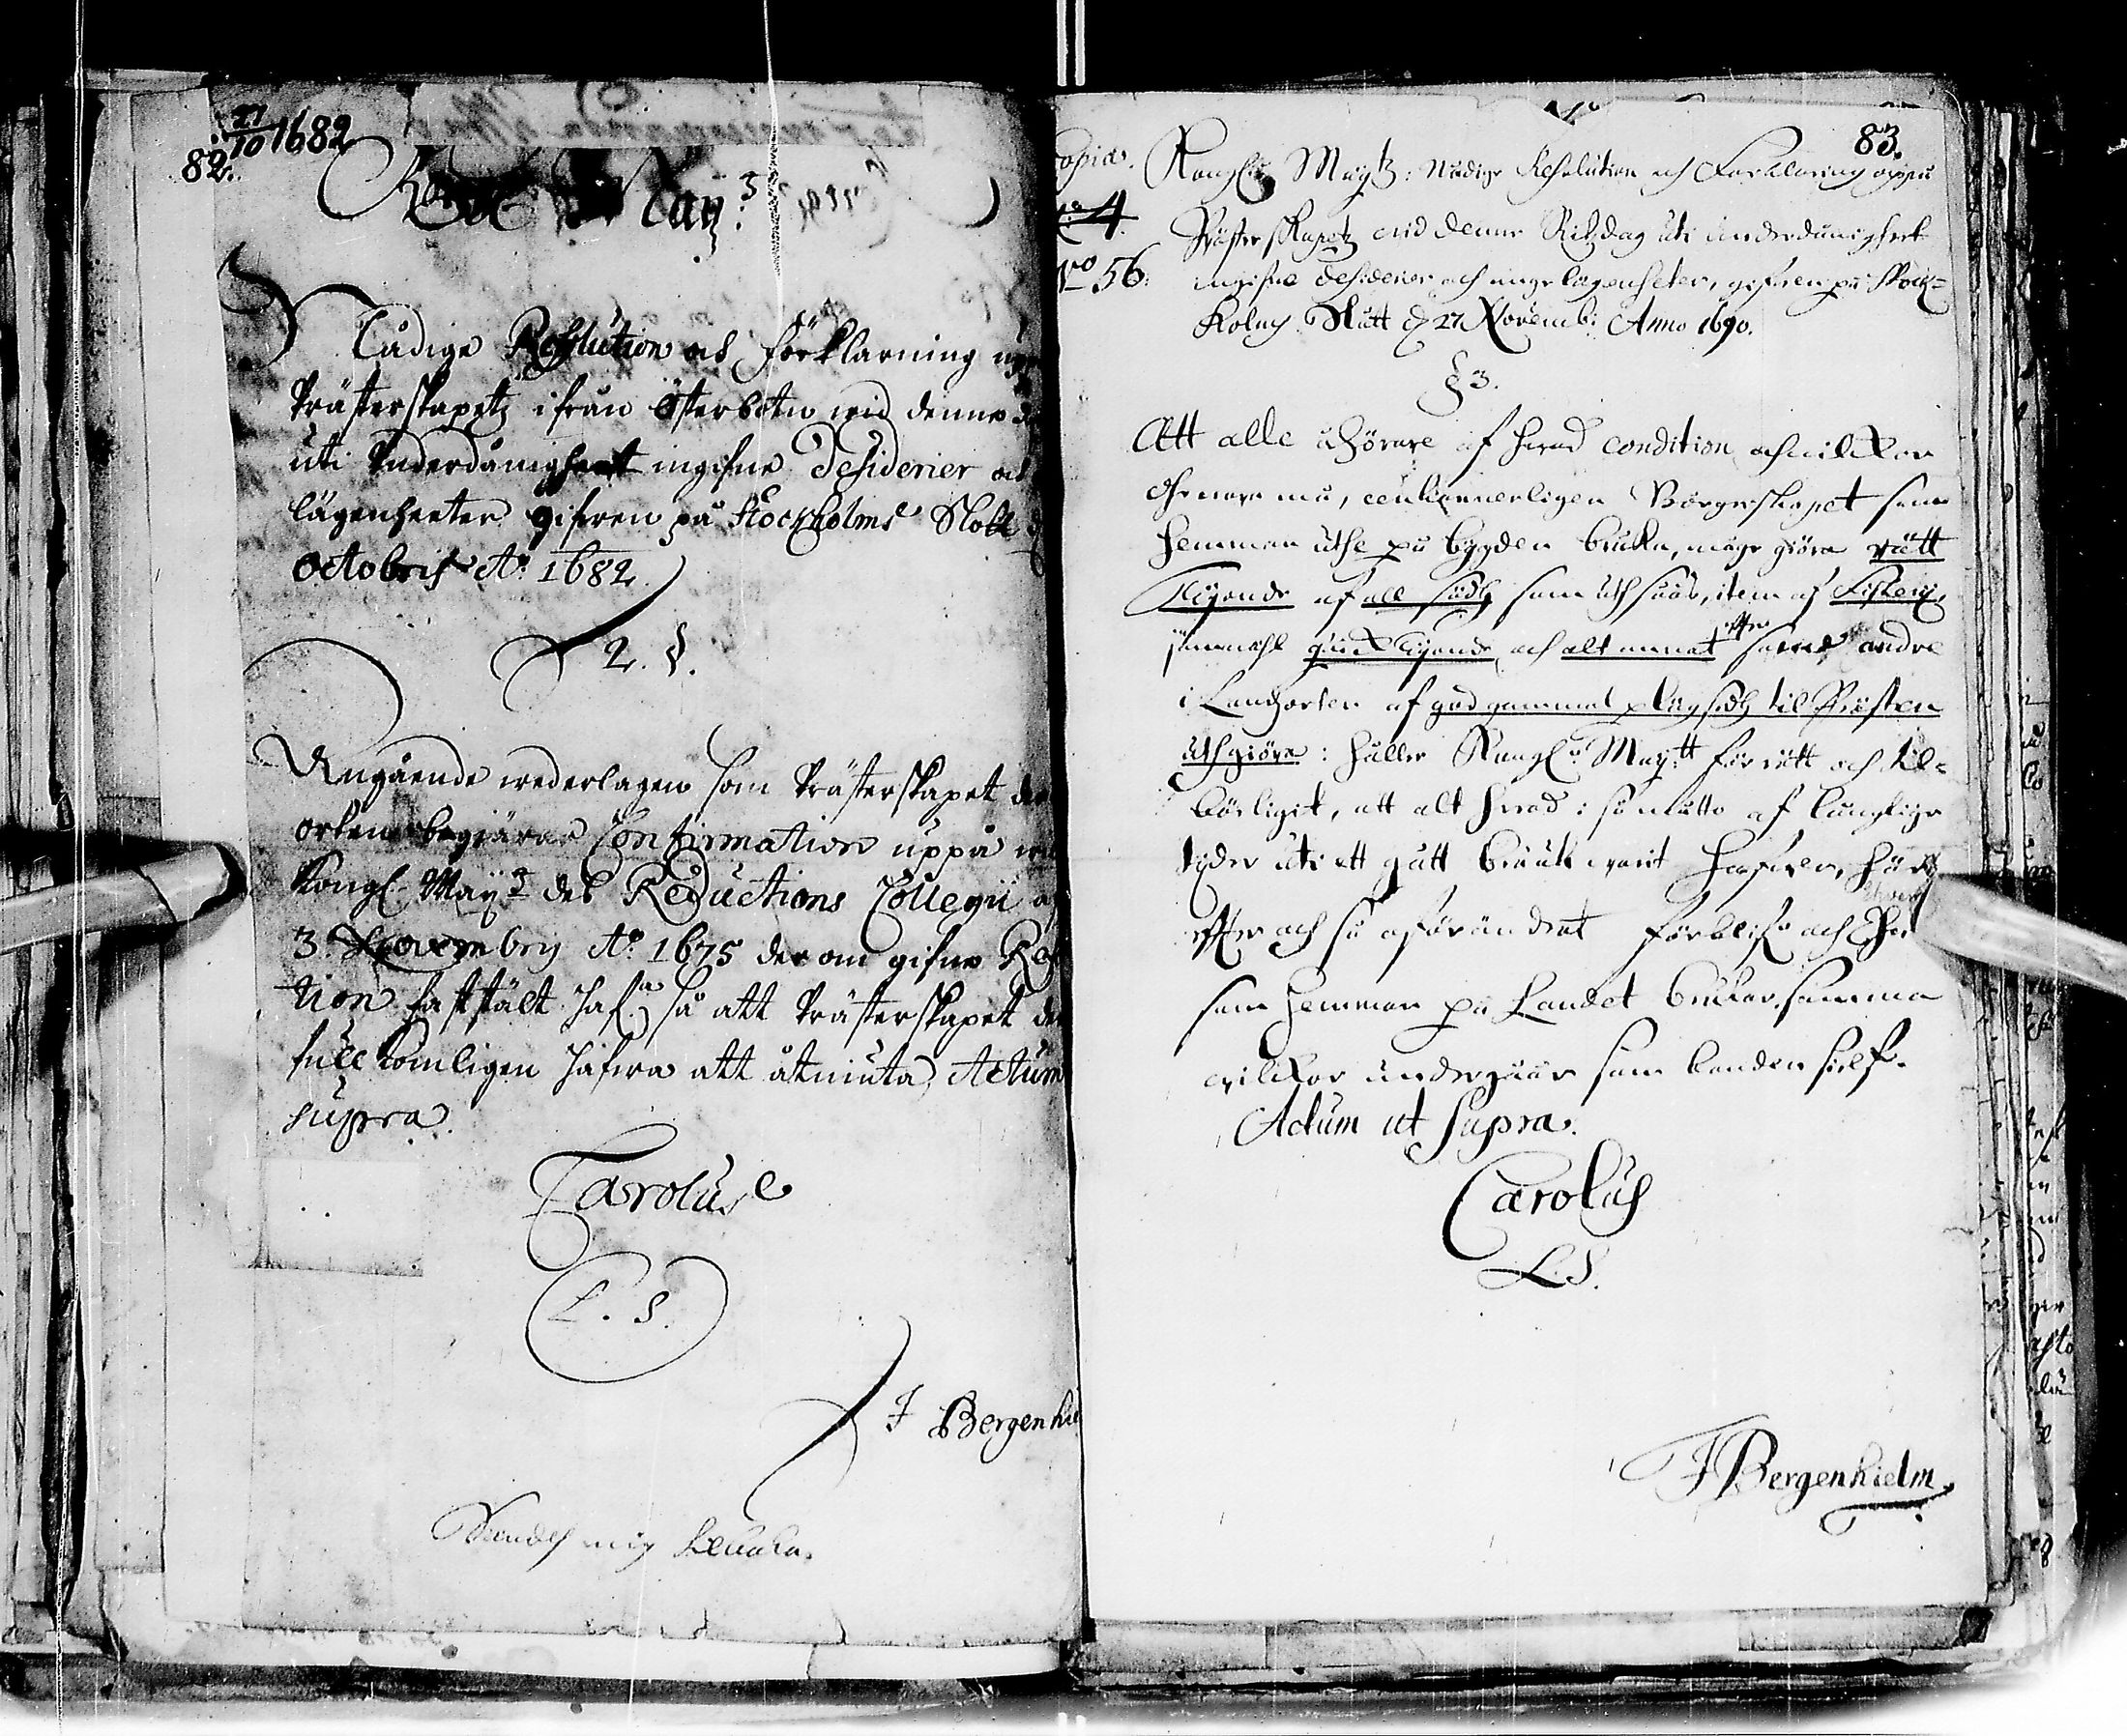 27/10 1682
82.
Kongl. May:tz
Nådige Resolution och förklarning upå
Prästerskapetz ifrån Österbotn wid denne
uti underdånigheet ingifne Desiderier och
lägenheeter gifwen på Stockholms Slott d
Octobris Ao 1682
2. §.
Angående wederlagen som Prästerskapet der
orten begiärar Confirmation uppå
Kongl. May:tz des Reductions Collegii
3. Novembris Ao: 1675 der om gifne Res
tion fastält hafa, så att Prästerskapet de
fullkomligen hafwa att åtniuta, Actum
supra.
Carolus
L. S.
J Bergenhie
83.
opia. Kongl. Maytz: Nådige Resolution och Förklaring oppå
4. Prästerskapetz wid denne Rikzdag uti underdånigheet
No 56. ingifne Desiderier och angelägenheter, gifwen på Stock=
holms Slått d 27 Novemb: Anno 1690.
§ 3.
Att alle åhörare af hwad condition och wilkor
the wara må, enkannerligen Borgerskapet som
hemman uthe på bygden bruka, måge giöra rätt
Tijonde af all sädh som uth såås, item af Fiskerij,
jemwähl quick Tijonde och alt annat efter hwad andre
i Landzorten af god gammal plägsedh til Prästen
uthgiöra: håller Kongl. May:tt för rätt och til=
börligit, att alt hwad i så måtto af långlige
tijder uti ett gått bruuk warit hafwer, här
efter och så oförändrat förblifr och the
som hemman på Landet brukar, samma
wilkor undergåår som bonden sielf.
Actum ut supra.
Carolus
L. S.
J Bergenhielm